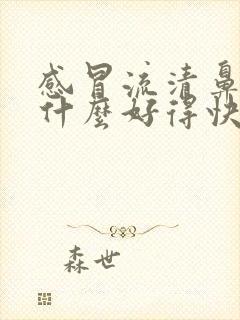 感冒流清鼻
什麼好得快
森世